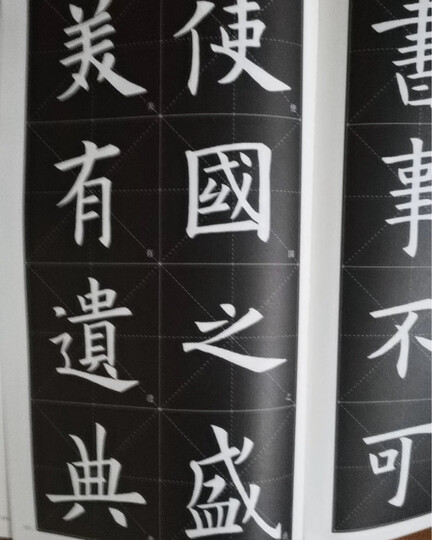 書事不可
使國之盛
美有遺典